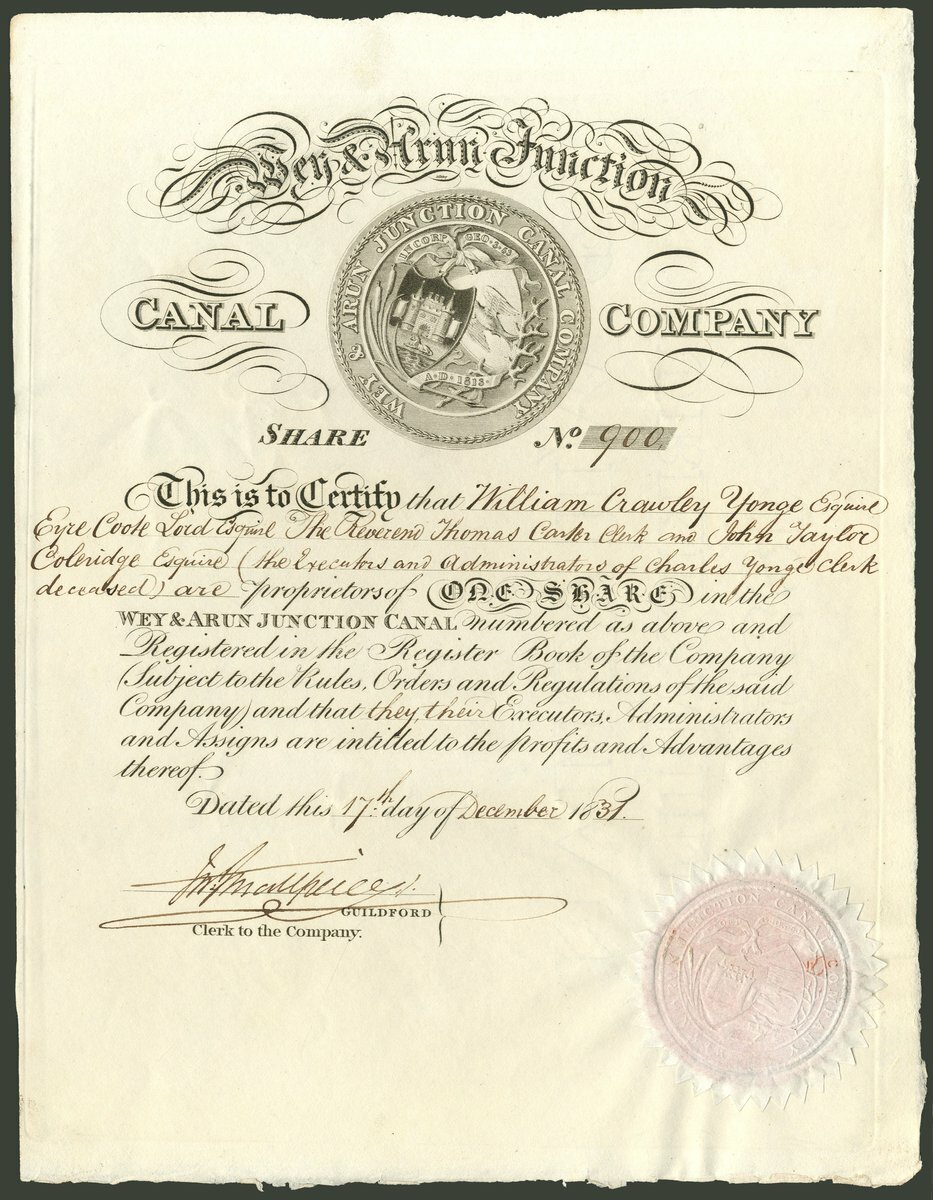 Wey & Arun Junction
WEY & ARUN JUNCTION CANAL COMPANY
INCORP. GEO. 3. 53
A·D·1813·
CANAL COMPANY
SHARE No. 900
This is to Certify that William Crawley Yonge Esquire
Eyre Coote Lord Esquire The Reverend Thomas Carter Clerk and John Taylor
Coleridge Esquire (the Executors and Administrators of Charles Yonge Clerk
deceased) are proprietors of ONE SHARE in the
WEY & ARUN JUNCTION CANAL numbered as above and
Registered in the Register Book of the Company
(Subject to the Rules, Orders and Regulations of the said
Company) and that they, their Executors, Administrators
and Assigns are intitled to the profits and Advantages
thereof.
Dated this 17th. day of December 1831.
GUILDFORD
Clerk to the Company.
JUNCTION CANAL COMPANY